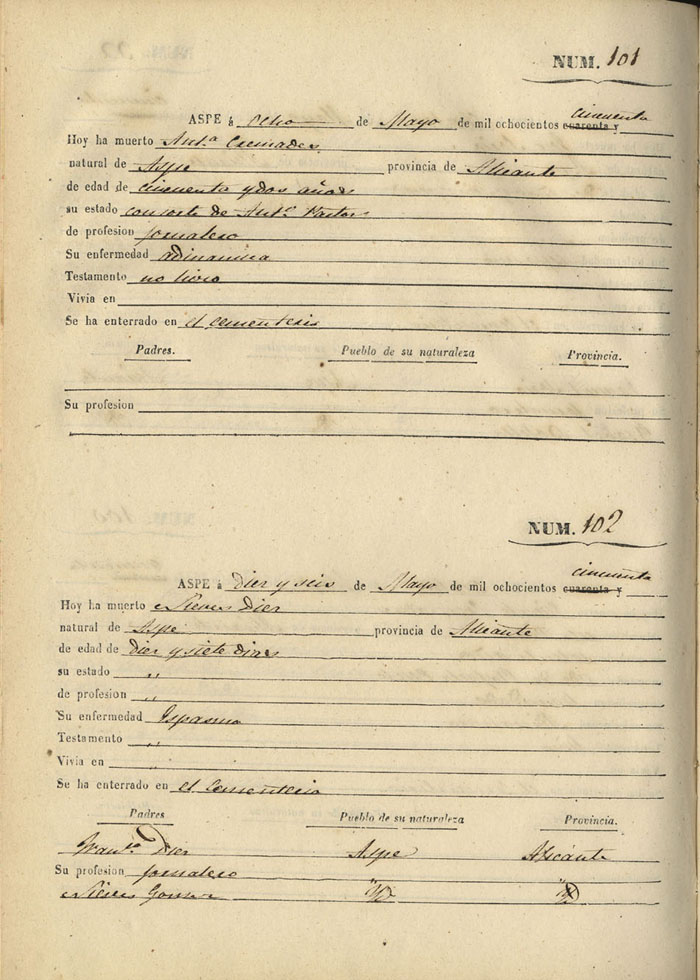 NUM. 101
cincuenta
ASPE á Ocho de Mayo de mil ochocientos cuarenta y
Hoy ha muerto Ant.a Cremades
natural de Aspe provincia de Alicante
de edad de cincuenta y dos años
su estado consorte de Ant.o Pastor
de profesion jornalero
Su enfermedad adinamica
Testamento no hizo
Vivia en
Se ha enterrado en el cementerio
Padres. Pueblo de su naturaleza Provincia.
Su profesion
NUM. 102
cincuenta
ASPE á Diez y seis de Mayo de mil ochocientos cuarenta y
Hoy ha muerto Nieves Diez
natural de Aspe provincia de Alicante
de edad de diez y siete dias
su estado "
de profesion "
Su enfermedad Espasmo
Testamento "
Vivia en "
Se ha enterrado en el Cementerio
Padres Pueblo de su naturaleza Provincia.
Fran.co Diez Aspe Alicante
Su profesion jornalero
Nieves